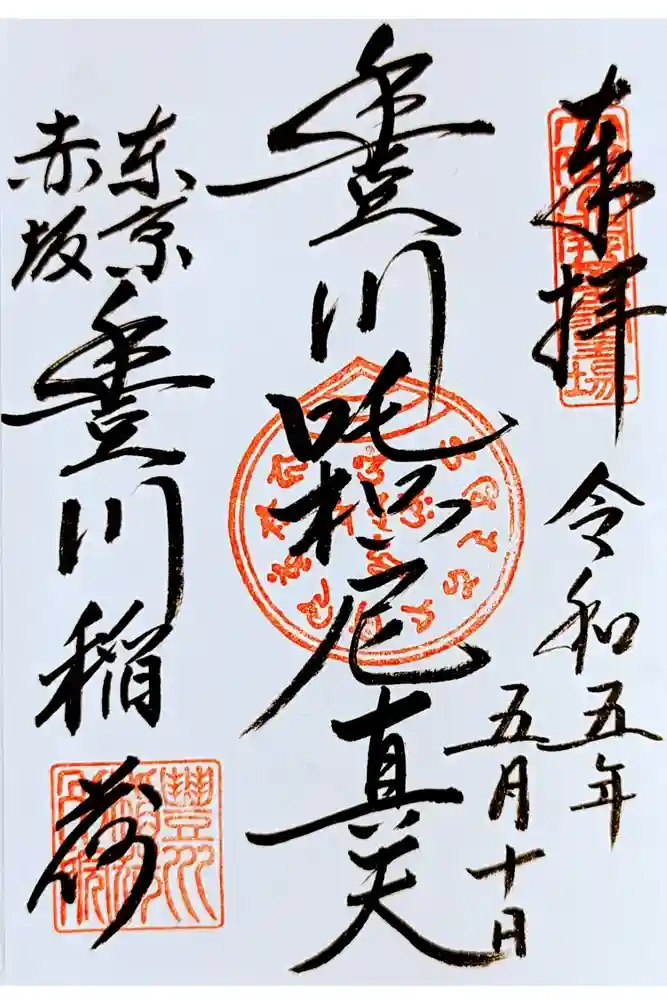 来拝
令和五年
五月十日
豊川吒枳尼真天
東京
赤坂
豊川稲荷